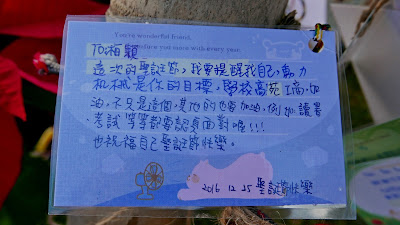 You're wonderful friend.
To湘穎
believe you more with every year.
這次的聖誕節,我要提醒我自己,動力
機械是你的目標,學校高苑工商,加
油,不只是這個,其他的也要加油,例如讀書
、考試等等都要認真面對喔!!!
也祝福自己聖誕節快樂。
2016 12.25 聖誕節快樂